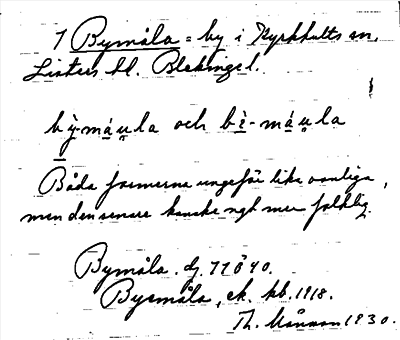 1 Bymåla = by i Kyrkhults sn,
Listers hd. Blekinge l.
bỳ-máu̯la och bì-máu̯la
Båda formerna ungefär lika vanliga,
men den senare kanske ngt mer folklig.
Bymåla, dj. 1840.
Byamåla, ek. kb. 1918.
Th. Månsson 1930.